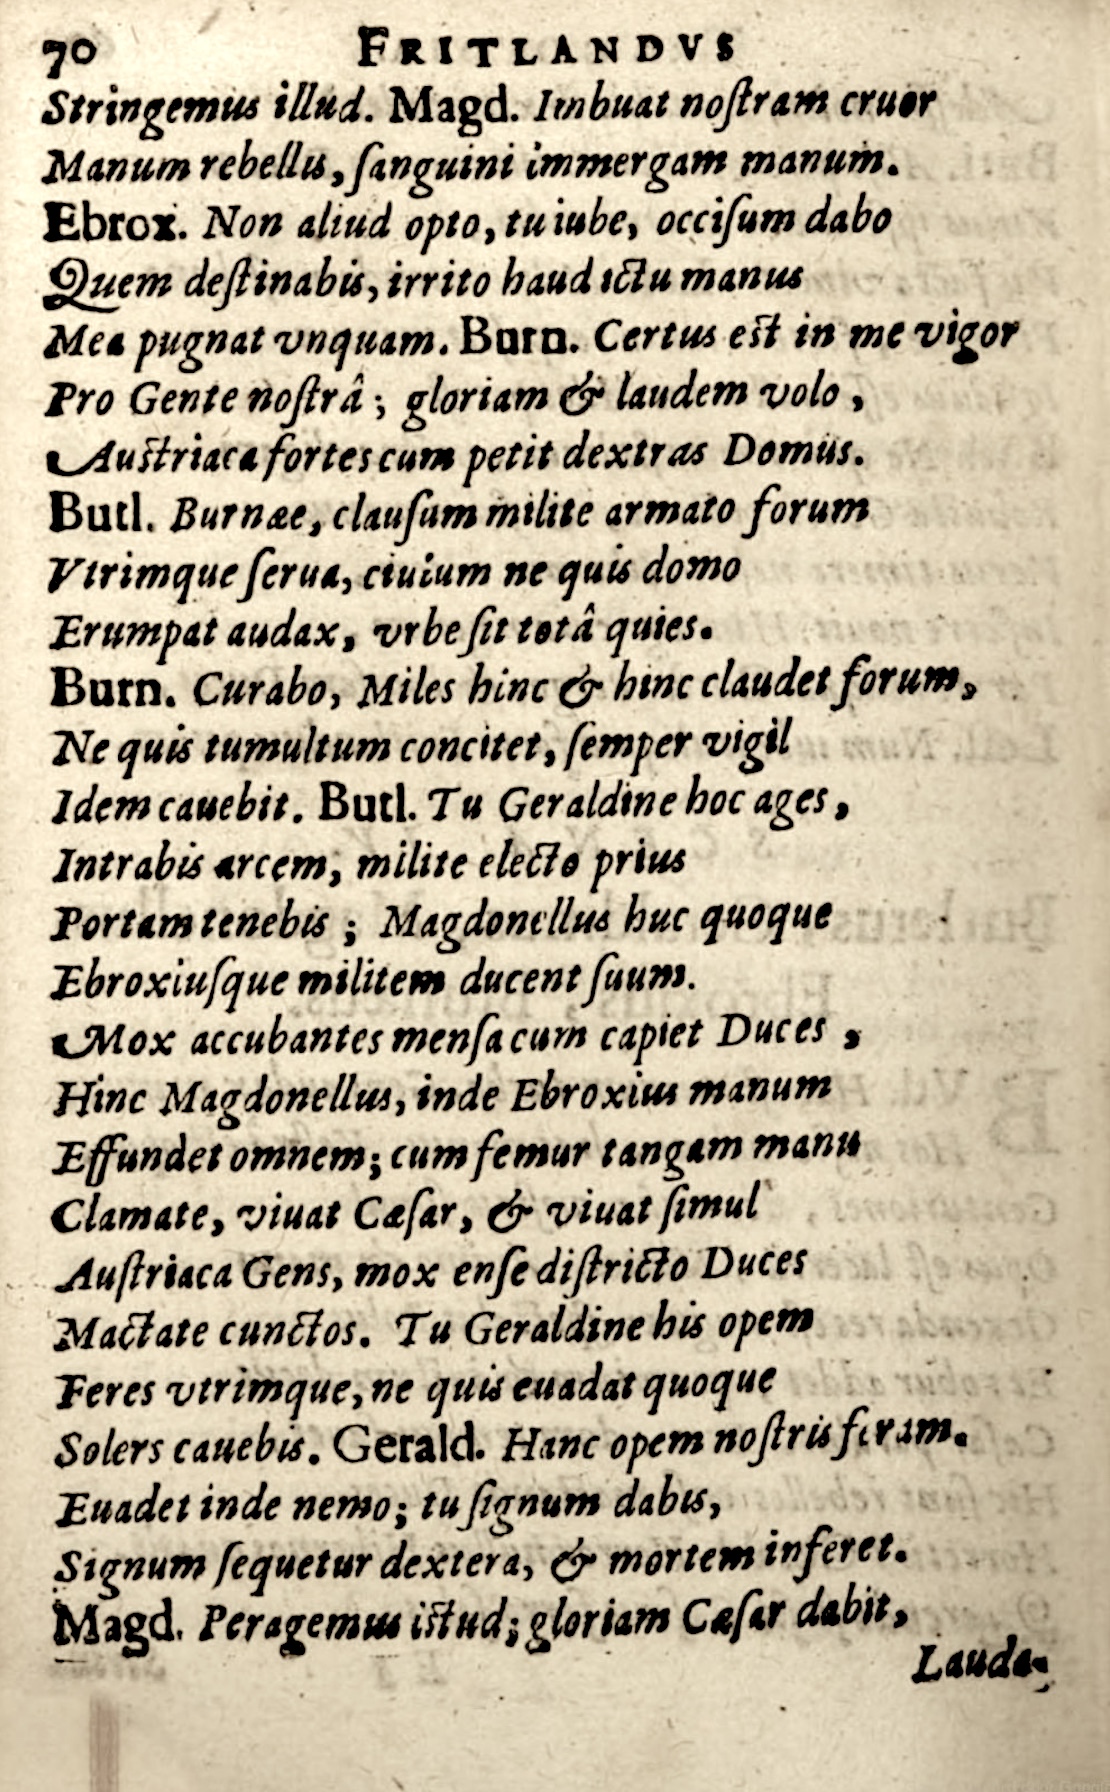 70 FRITLANDVS
Stringemus illud. Magd. Imbuat noſtram cruor
Manum rebellis, ſanguini immergam manum.
Ebrox. Non aliud opto, tu iube, occiſum dabo
Quem deſtinabis, irrito haud ictu manus
Mea pugnat vnquam. Burn. Certus eſt in me vigor
Pro Gente noſtrâ; gloriam & laudem volo,
Auſtriaca fortes cum petit dextras Domus.
Butl. Burnæe, clauſum milite armato forum
Vtrimque ſerua, ciuium ne quis domo
Erumpat audax, vrbe ſit totâ quies.
Burn. Curabo, Miles hinc & hinc claudet forum,
Ne quis tumultum concitet, ſemper vigil
Idem cauebit. Butl. Tu Geraldine hoc ages,
Intrabis arcem, milite electo prius
Portam tenebis; Magdonellus huc quoque
Ebroxiuſque militem ducent ſuum.
Mox accubantes menſa cum capiet Duces,
Hinc Magdonellus, inde Ebroxius manum
Effundet omnem; cum femur tangam manu
Clamate, viuat Cæſar, & viuat ſimul
Auſtriaca Gens, mox enſe diſtricto Duces
Mactate cunctos. Tu Geraldine his opem
Feres vtrimque, ne quis euadat quoque
Solers cauebis. Gerald. Hanc opem noſtris feram.
Euadet inde nemo; tu ſignum dabis,
Signum ſequetur dextera, & mortem inferet.
Magd. Peragemus iſtud; gloriam Cæſar dabit,
Lauda-